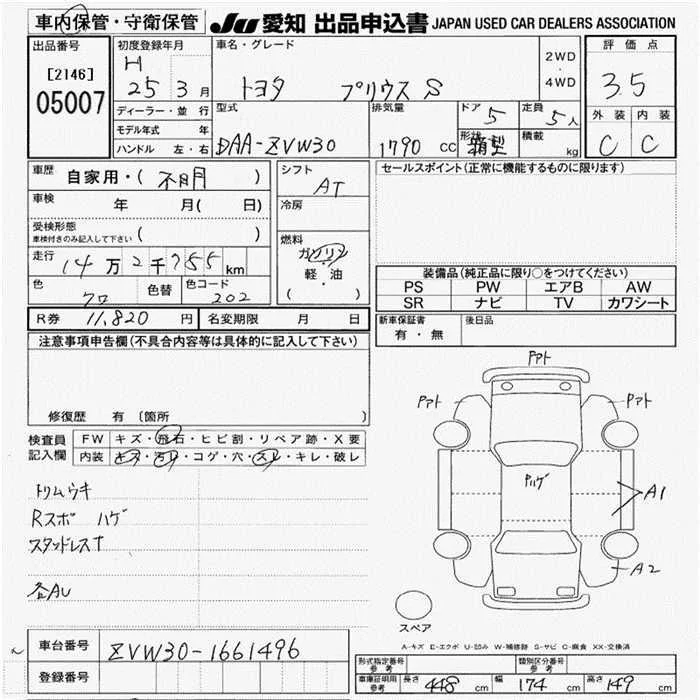 車内保管・守衛保管 JU 愛知 出品申込書 JAPAN USED CAR DEALERS ASSOCIATION
出品番号
[2146]
05007
初度登録年月
H
25 3 月
ディーラー・並行
モデル年式 年
ハンドル 左・右
車名・グレード
トヨタ プリウス S
2WD
・
4WD
評価点
3.5
外装 内装
C C
型式
DAA-ZVW30
排気量
1790 CC
ドア 5
定員 5人
形状 箱型
積載 kg
車歴 自家用・( 不明 )
車検 年 月( 日)
受検形態
車検付きのみ記入して下さい ( )
走行 14万2千755 km
色 クロ 色替 色コード 202
シフト
AT
冷房
燃料
ガソリン
軽・油
( )
セールスポイント(正常に機能するものに限ります)
装備品(純正品に限り○をつけてください)
PS PW エアB AW
SR ナビ TV カワシート
R券 11,820 円 名変期限 月 日
新車保証書
有・無
後日品
注意事項申告欄(不具合内容等は具体的に記入して下さい)
修復歴 有〔箇所 〕
検査員
記入欄
FW キズ・飛石・ヒビ割・リペア跡・X要
内装 キズ・汚れ・コゲ・穴・スレ・キレ・破レ
トリムウキ
Rスポ ハゲ
スタッドレスT
各AU
Pアト
Pアト
Pアト
Pハゲ
A1
A2
スペア
A-キズ E-エクボ U-凹み W-補修跡 S-サビ C-腐食 XX-交換済
車台番号 ZVW30-1661496
登録番号
形式指定番号
参考
類別区分番号
参考
車庫証明用
参考
長さ 448 cm 幅 174 cm 高さ 149 cm